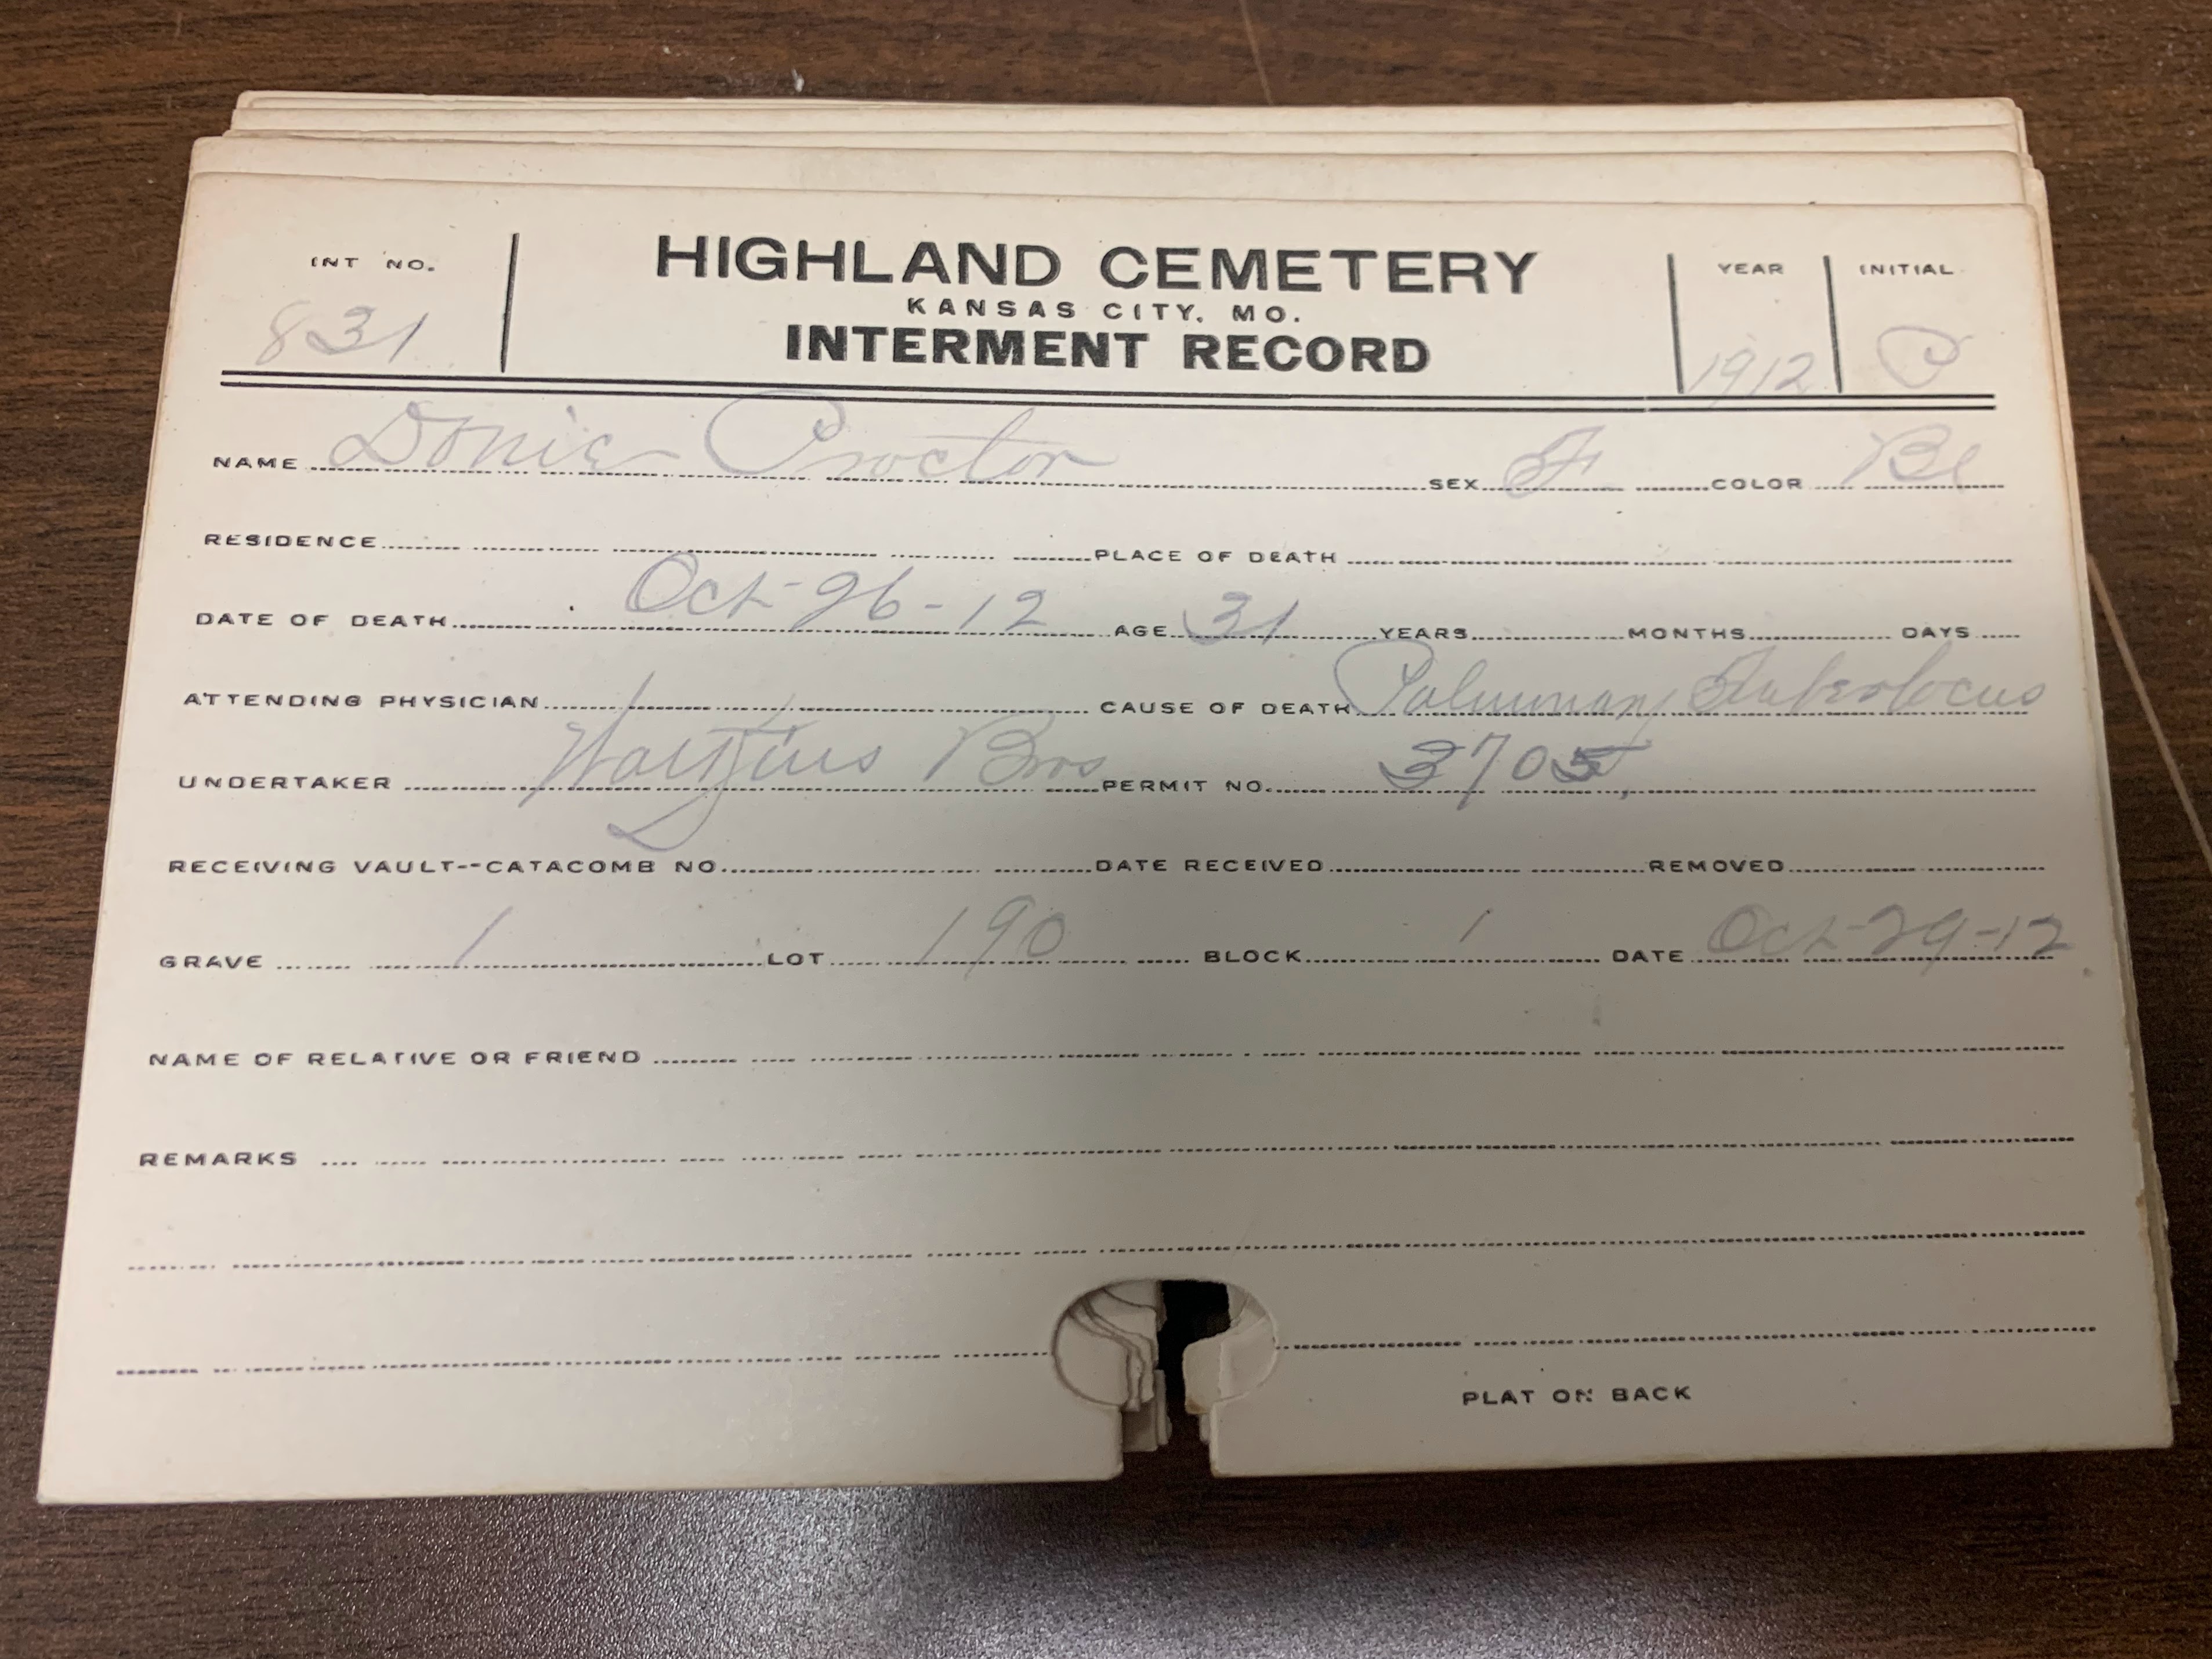 INT NO. HIGHLAND CEMETERY YEAR INITIAL
KANSAS CITY, MO.
831 INTERMENT RECORD 1912 P
NAME Donie Proctor SEX F COLOR Bl
RESIDENCE PLACE OF DEATH
DATE OF DEATH Oct-26-12 AGE 31 YEARS MONTHS DAYS
ATTENDING PHYSICIAN CAUSE OF DEATH
UNDERTAKER Watkins Bros PERMIT NO. 3705
RECEIVING VAULT--CATACOMB NO. DATE RECEIVED REMOVED
GRAVE 1 LOT 190 BLOCK 1 DATE Oct-29-12
NAME OF RELATIVE OR FRIEND
REMARKS
PLAT ON BACK